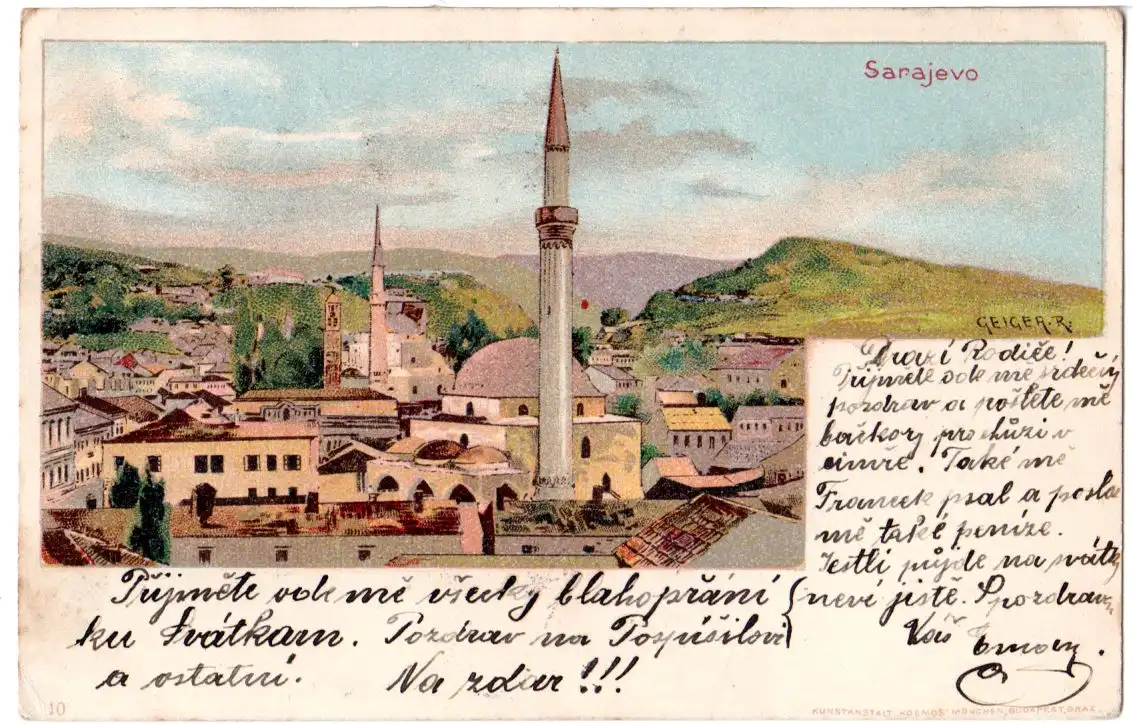 Sarajevo
GEIGER-R.
Drazí Rodiče!
Přijměte ode mě srdečný
pozdrav a pošlete mě
bačkory pro chůzi v
cimře. Také mě
Francek psal a posla
mě také peníze.
Jestli půjde na svátky
neví jistě. S pozdravem
Váš
Přijměte ode mě všecky blahopřání
ku Svátkam. Pozdrav na Pospíšilovi
a ostatní. Na zdar!!!
10
KUNSTANSTALT "KOSMOS" MÜNCHEN, BUDAPEST, GRAZ.